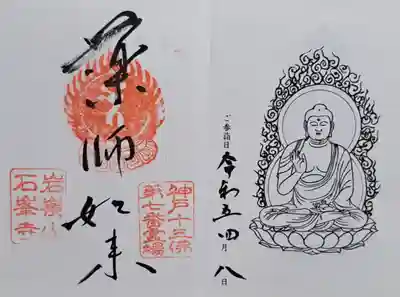 ご参詣日 令和五 四月八日
薬師
如来
神戸十三佛
第七番霊場
岩嶺山
石峯寺